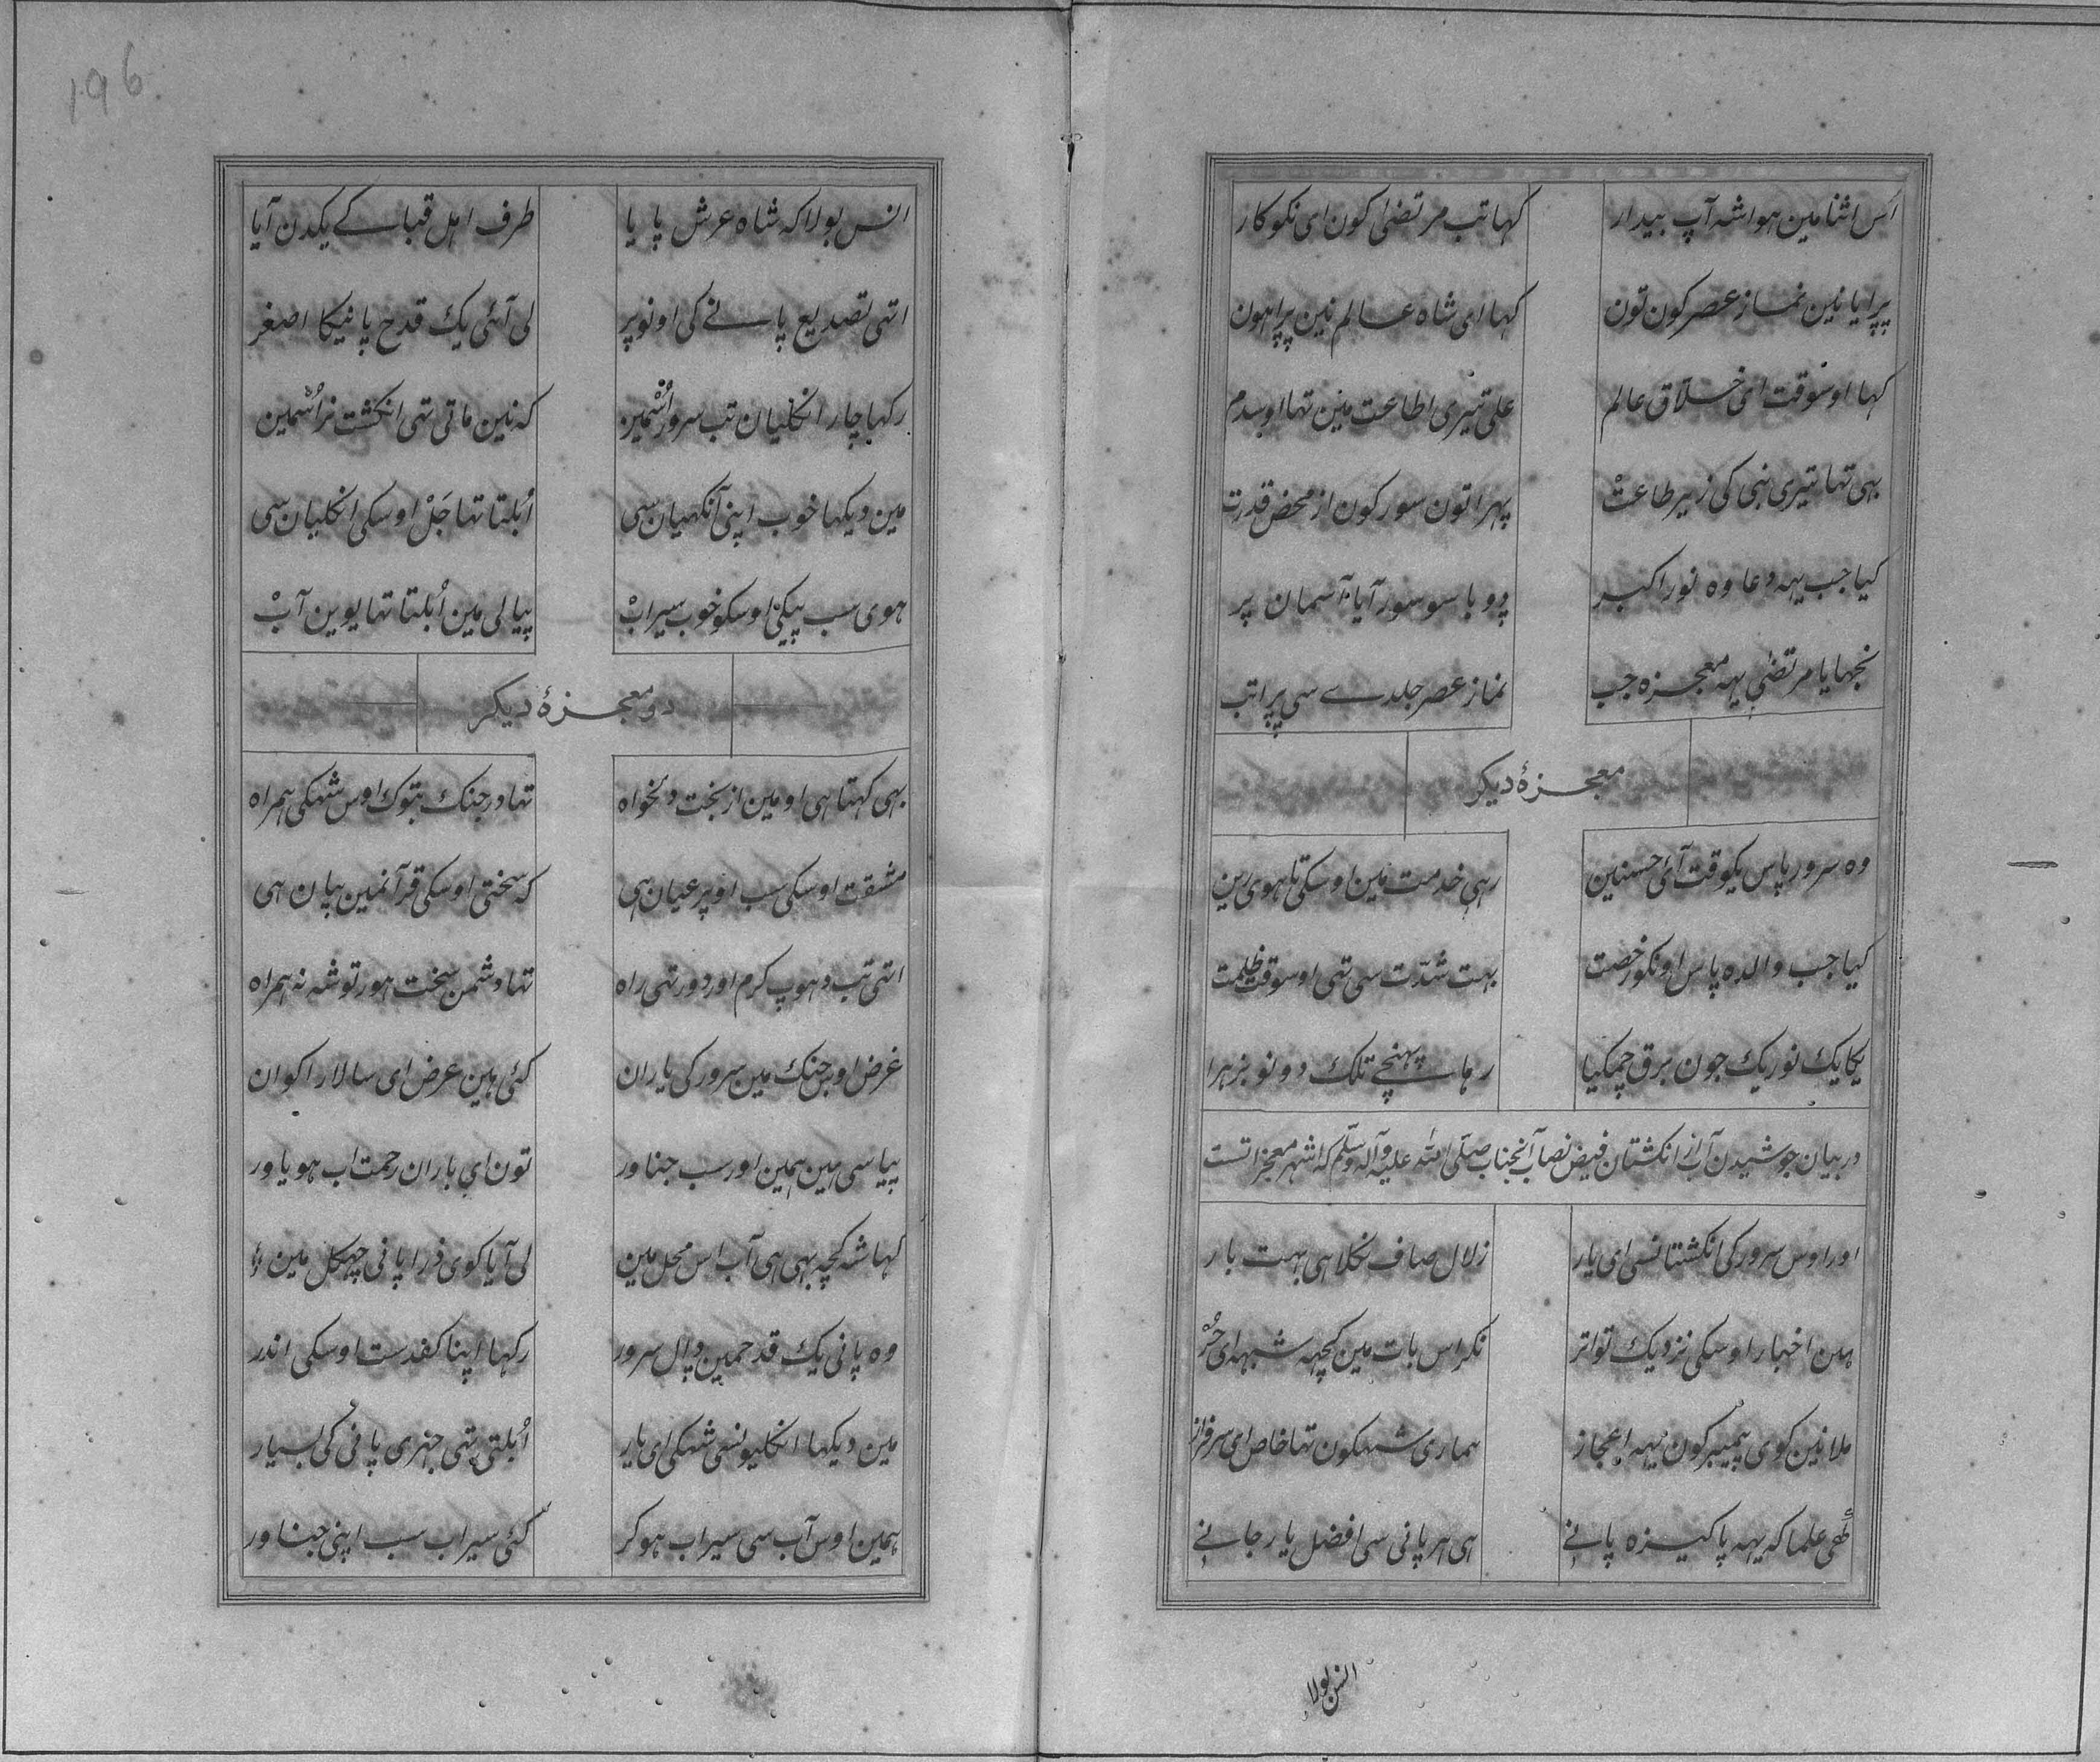 اس اثنا مین ہوا شہ آپ بیدار کہا تب مرتضیٰ کون ای نکوکار
پڑیا نین نماز عصر کون تون کہا ای شاہ عالم نین پڑا ہون
کہا اوسوقت ای خلاق عالم علی تیری اطاعت مین تہا اوسدم
بہی تہا تیری نبی کی زیر طاعت پہرا تون سور کون از محض قدرت
کیا جب یہہ دعا وہ نور اکبر دوبا سو سور آیا آسمان پر
نجہایا مرتضیٰ یہہ معجزہ جب نماز عصر جلدے سی پڑا تب
معجزۂ دیکر
وہ سرور پاس یکوقت آئی حسنین رہی خدمت مین اوسکی تا ہوی رین
کیا جب والدہ پاس اونکو رخصت بہت شدّت سی تہی اوسوقت ظلمت
یکایک نور یک جون برق چمکیا رہا پہنچے تلک دونو بزہرا
در بیان جوشیدن آب از انکشتان فیض نصاب آنجناب صلّی اللہ علیہ وآلہ وسلّم کہ اشہر معجزاتست
اور اوس سرور کی انکشتانسی ای یار زلال صاف نکلا ہی بہت بار
ہین اخبار اوسکی نزدیک تواتر نکر اس بات مین کچہہ شبہہ ای حُرْ
ملا نین کوی پیمبر کون یہہ اعجاز ہماری شہکون تہا خاص ای سرفراز
علما کہ یہہ پاکیزہ پانے ہی ہر پانی سی افضل یار جانے
انس بولا
196
انس بولا کہ شاہ عرش پایا طرف اہل قبا کے یکدن آیا
اتہی تصدیع پانے کی اونوپر لی آئی یک قدح پانیکا اصغر
رکہا چار انکلیان تب سرور اُسْمین کہ نین ماتی تہی انکشت نر اُسْمین
مین دیکہا خوب اپنی آنکہیان سی اُبلتا تہا جَلْ اوسکی انکلیان سی
ہوی سب پیکی اوسکو خوب سیراب پیالی مین اُبلتا تہا یوین آبْ
دو معجزۂ دیکر
بہی کہتا ہی او مین از بخت دلخواہ تہا در جنک تبوک اوس شہکی ہمراہ
مشقت اوسکی سب اوپر عیان ہی کہ سختی اوسکی قرآنمین بیان ہی
اتہی تب دہوپ کرم اور دور تہی راہ تہا دشمن سخت ہور توشہ نہ ہمراہ
غرض اوس جنک مین سرور کی یاران کئی ہین عرض ای سالار اکوان
پیاسی ہین ہمین اور سب جناور تون ای باران رحمت اب ہو یاور
کہا شہ کچہ بہی ہی آب اس محل مین لی آیا کوی ذرا پانی چہکل مین
وہ پانی یک قدحمین ڈال سرور رکہا اپنا کفدست اوسکی اندر
مین دیکہا انکلیونسی شہکی ای یار اُبلتی تہی جہری پانی کی بسیار
ہمین اوس آب سی سیراب ہوکر کئی سیراب سب اپنی جناور